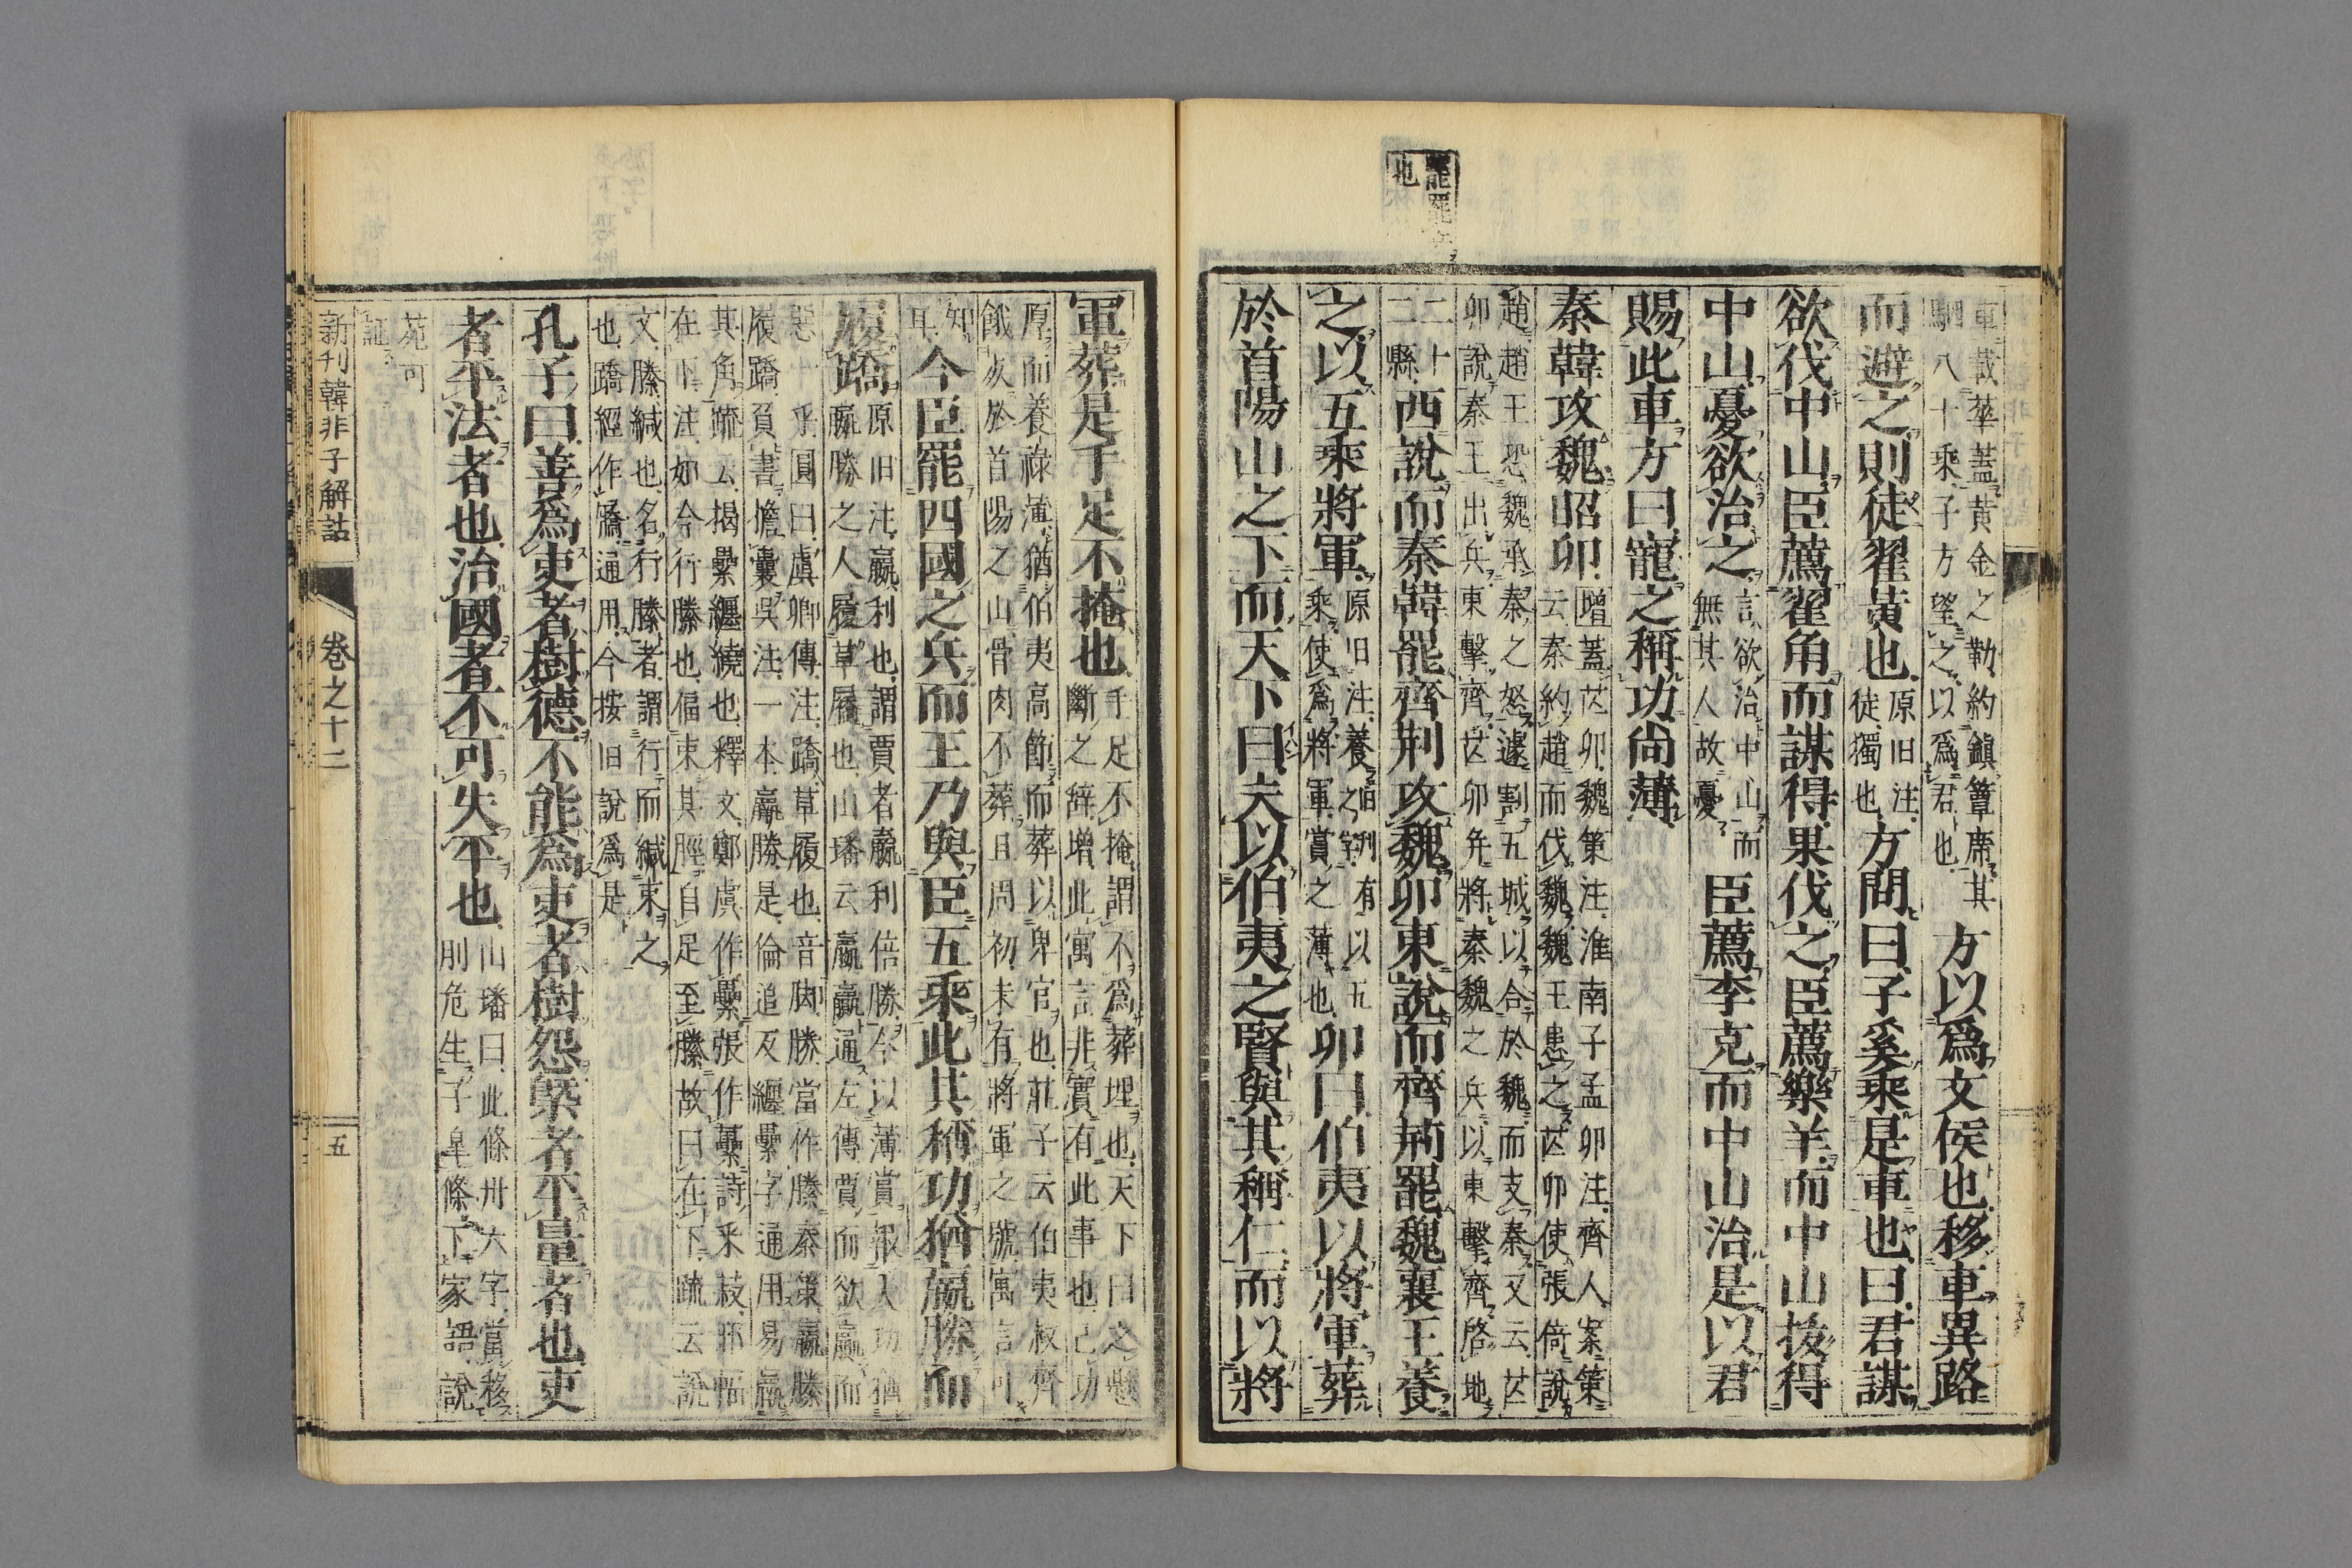 罷罷兵
也
車載華蓋黃金之勒約鎮簟席其
駟八十乘子方望之以爲君也
方以爲文侯也移車異路
而避之則徒翟黃也
原旧注
徒獨也
方問曰子奚乘是車也曰君謀
欲伐中山臣薦翟角而謀得果伐之臣薦樂羊而中山拔得
中山憂欲治之
言欲治中山而
無其人故憂
臣薦李克而中山治是以君
賜此車方曰寵之稱功尚薄
秦韓攻魏昭卯
增蓋芒卯魏策注淮南子孟卯注齊人案策
云秦約趙而伐魏魏王患之芒卯使張倚說
趙趙王恐魏承秦之怒遽割五城以合於魏而支秦又云芒
卯說秦王出兵東擊齊芒卯并將秦魏之兵以東擊齊啓地
二十
二縣
西說而秦韓罷齊荆攻魏卯東說而齊荊罷魏襄王養
之以五乘將軍
原旧注養之旧刊有以五
乘使爲將軍賞之薄也
卯曰伯夷以將軍葬
於首陽山之下而天下曰夫以伯夷之賢與其稱仁而以將
軍葬是手足不掩也
手足不掩謂不爲葬埋也天下曰之懸
斷之辭增此寓言非實有此事也己功
厚而養祿薄猶伯夷高節而葬以卑官也莊子云伯夷叔齊
餓死於首陽之山骨肉不葬且周初未有將軍之號寓言可
知
耳
今臣罷四國之兵而王乃與臣五乘此其稱功猶羸勝而
履蹻
原旧注羸利也謂賈者羸利倍勝今以薄賞報人功猶
羸勝之人履草屩也山璠云羸贏通左傳賈而欲贏而
惡囂乎圓曰虞卿傳注蹻草履也音脚勝當作縢秦策羸縢
履蹻負書擔囊吳注一本羸勝是倫追反纏纍字通用易羸
其角疏云揭纍纏繞也釋文鄭虞作纍張作虆詩采菽邪幅
在下注如今行縢也偪束其脛自足至膝故曰在下疏云說
文縢緘也名行縢者謂行而緘束之
也蹻經作屩通用今按旧說爲是
孔子曰善爲吏者樹德不能爲吏者樹怨槩者平量者也吏
者平法者也治國者不可失平也
山璠曰此條卅六字當移
刖危生子皐條下家語說
苑可
証
新刊韓非子解詁
卷之十二
五